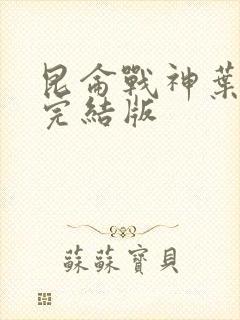 昆侖戰神葉
完結版
蘇蘇寶貝